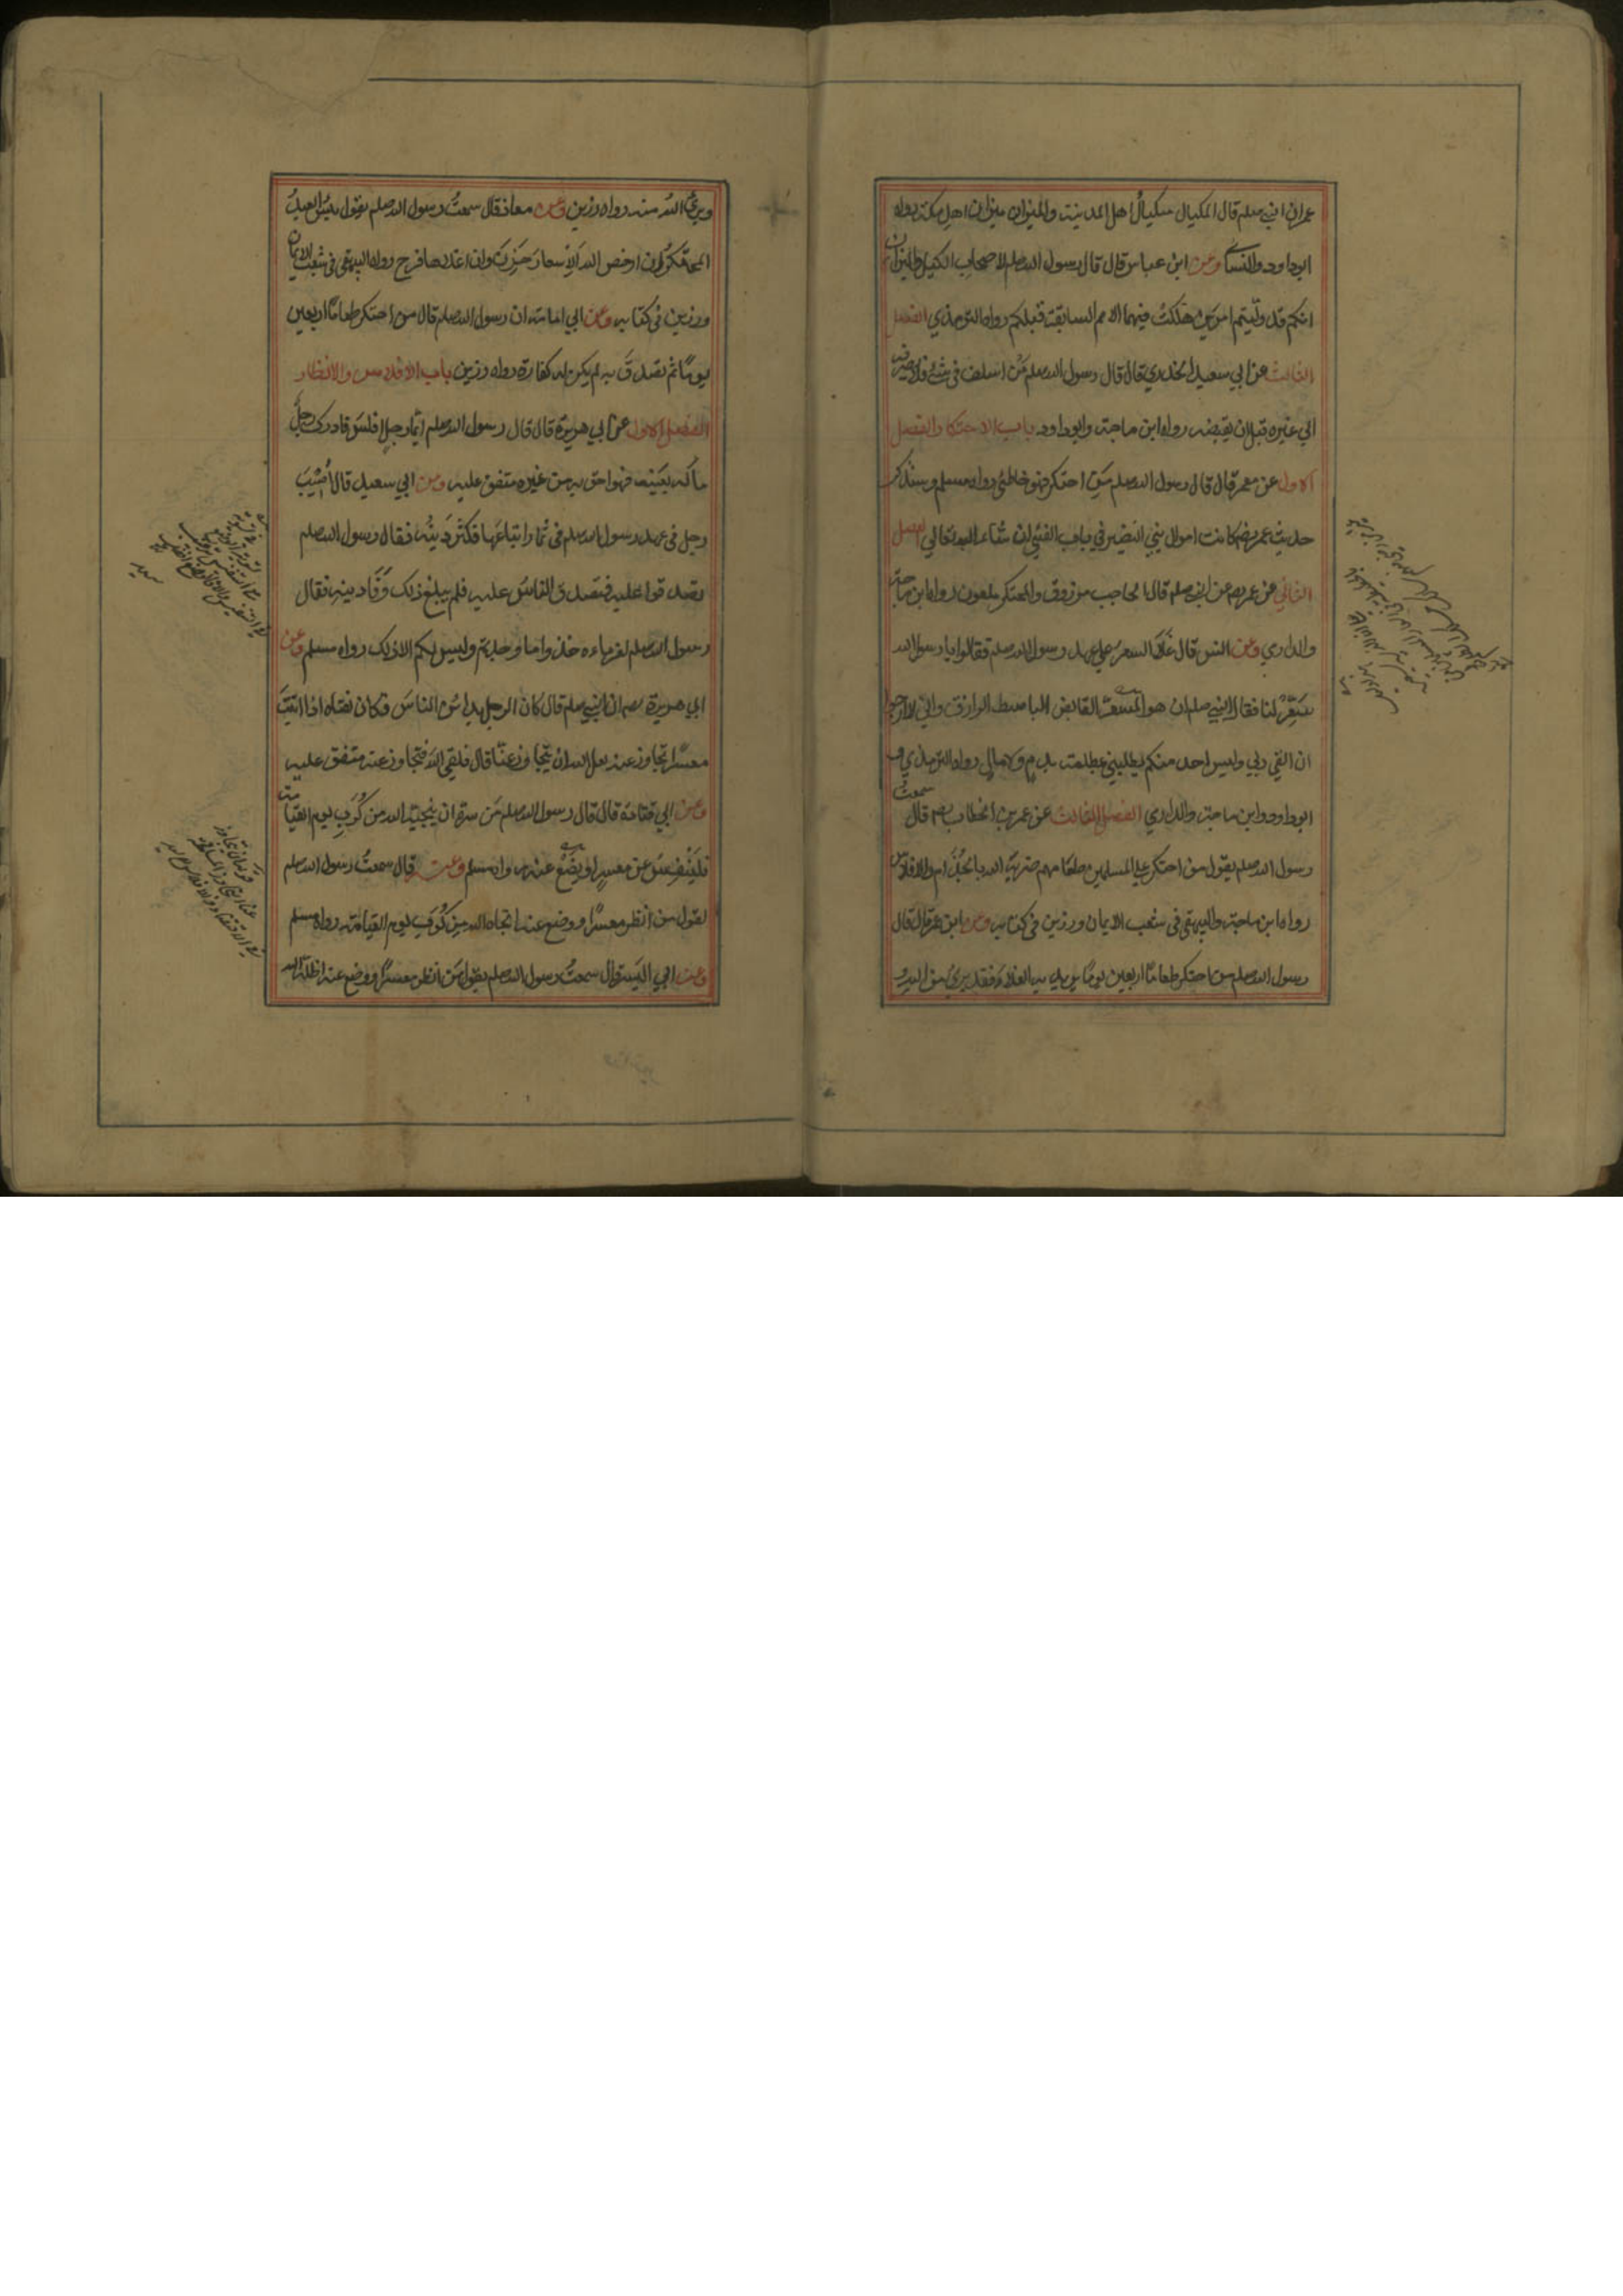 عمر ان النبي صلعم قال المكيال مكيال اهل المدينة والميزان ميزان اهل مكة رواه
ابوداود والنسائي وعن ابن عباس قال قال رسول الله صلعم لاصحاب الكيل والميزان
انكم قد وليتم امرين هلكت فيهما الامم السابقة قبلكم رواه الترمذي الفصل
الثالث عن ابي سعيد الخدري قال قال رسول الله صلعم من اسلف في شئ فلا يصرفه
الي غيره قبل ان يقبضه رواه ابن ماجة وابوداود باب الاحتكار الفصل
الاول عن معمر قال قال رسول الله صلعم من احتكر فهو خاطئ رواه مسلم وسنذكر
حديث عمر رضه كانت اموال بني النضير في باب الفئي ان شاء الله تعالي الفصل
الثاني عن عمر رضه عن النبي صلعم قال الجاجب مرزوق والمحتكر ملعون رواه ابن ماجة
والدارمي وعن انس قال غلا السعر علي عهد رسول الله صلعم فقالوا يا رسول الله
سَعِّرْ لنا فقال النبي صلعم ان هو المسعر القابض الباسط الرازق واني لارجوا
ان القي ربي وليس احد منكم يطلبني بمظلمة بدم ولا مال رواه الترمذي و
ابوداود وابن ماجة والدارمي الفصل الثالث عن عمر بن الخطاب رضه قال سمعتُ
رسول الله صلعم يقول من احتكر علي المسلمين طعامهم ضربه الله بالجُذَام والافلاس
رواه ابن ماجة والبيهقي في شعب الايمان ورزين في كتابه وعن ابن عمر قال قال
رسول الله صلعم من احتكر طعامًا اربعين يومًا يريد به الغلاء فقد برئ من الله و
وبرئ اللهُ منه رواه رزين وعن معاذ قال سمعتُ رسول الله صلعم يقول بئس العبدُ
المحتكرُ ان ارخص الله الاسعارَ حَزِنَ وان اغلاها فرح رواه البيهقي في شعب الايمان
ورزين في كتابه وعن ابي امامة ان رسول الله صلعم قال من احتكر طعامًا اربعين
يومًا ثم تصدّقَ به لم يكن له كفارة رواه رزين باب الافلاس والانظار
الفصل الاول عن ابي هريرة قال قال رسول الله صلعم ايّما رجل افلسَ فادرك رجلٌ
ماله بعينه فهو احق به من غيره متفق عليه وعن ابي سعيد قال اُصِيْبَ
رجل في عهد رسول الله صلعم في ثمار ابتاعَها فكَثُر دَينُه فقال رسول الله صلعم
تصدقوا عليه فتصدق الناسُ عليه فلم يبلغ ذلك وَفَاءَ دينه فقال
رسول الله صلعم لغرماءه خذوا ما وجدتم وليس لكم الا ذلك رواه مسلم وعن
ابي هريرة رضه ان النبي صلعم قال كان الرجل يداينُ الناسَ فكان يقول لفتاه اذا اتيتَ
معسرًا تجاوز عنه لعل الله ان يتجاوز عنّا قال فلقي اللهَ فتجاوز عنه متفق عليه
وعن ابي قتادة قال قال رسول الله صلعم مَن سره ان ينجيهُ الله من كُرَبِ يوم القيامة
فليُنَفِّسْ عن معسرٍ او يضَعْ عنه رواه مسلم وعنه قال سمعتُ رسول الله صلعم
يقول من انظر معسرًا او وضع عنه انجاه الله من كُرَبِ يوم القيامة رواه مسلم
وعن ابي اليسر قال سمعتُ رسول الله صلعم يقول مَن انظر معسرًا او وضع عنه اظلّه الله